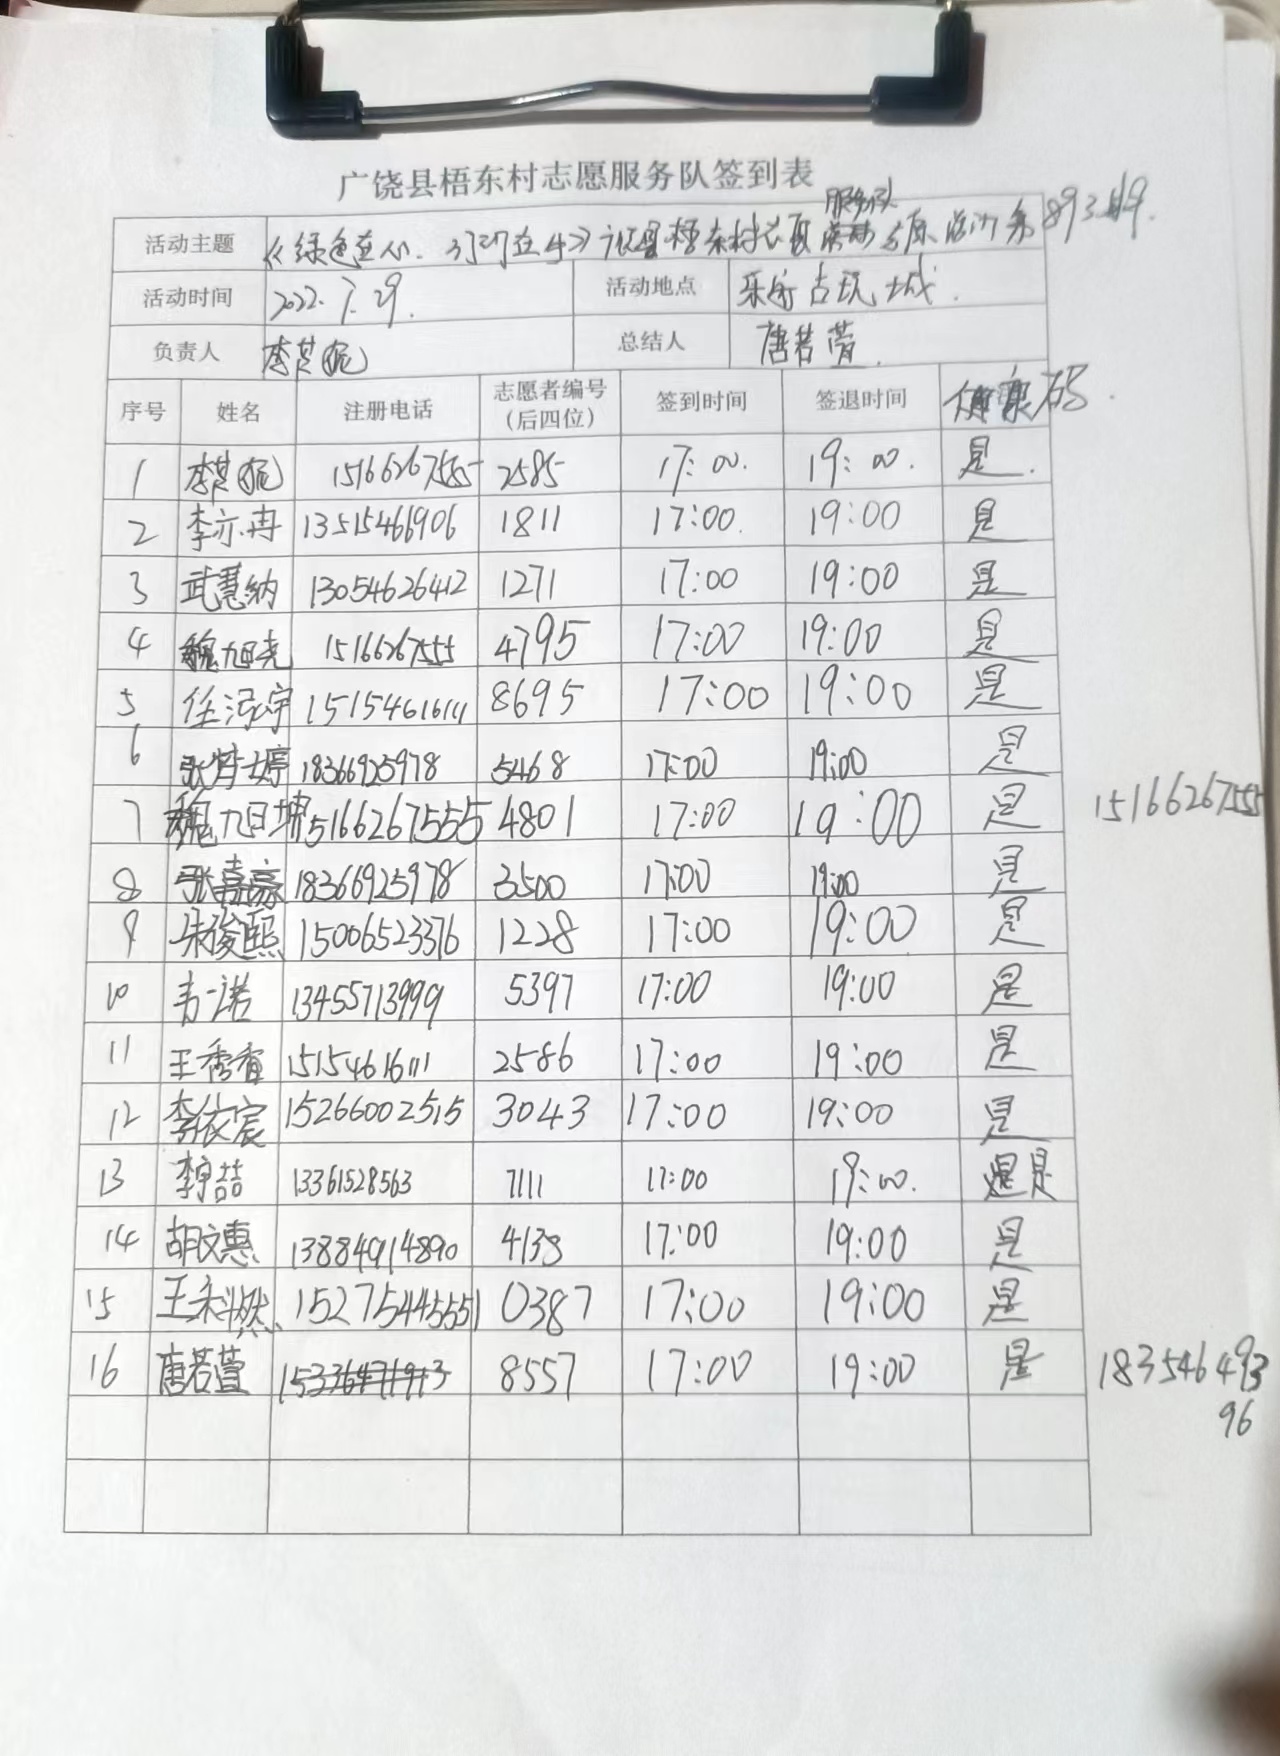 广饶县梧东村志愿服务队签到表
服务队
活动主题 《绿色在心 梧东村志愿 第893期.
活动时间 2022.7.29. 活动地点 乐安古玩城.
负责人 李 妮 总结人 唐若萱
序号 姓名 注册电话 志愿者编号(后四位) 签到时间 签退时间 健康码
1 李 妮 2585 17:00. 19:00. 是.
2 李亦冉 13515466906 1811 17:00. 19:00 是
3 武慧纳 13054626412 1271 17:00 19:00 是
4 魏旭尧 15166267555 4795 17:00 19:00 是
5 任泓宇 15154616111 8695 17:00 19:00 是
6 张梦婷 18366925978 5468 17:00 19:00 是
7 魏旭坤 15166267555 4801 17:00 19:00 是 15166267555
8 张嘉豪 18366925978 3500 17:00 19:00 是
9 朱俊熙 15006523376 1228 17:00 19:00 是
10 韦一诺 13455713999 5397 17:00 19:00 是
11 王秀香 15154616111 2586 17:00 19:00 是
12 李依宸 15266002515 3043 17:00 19:00 是
13 李 喆 13361528563 7111 17:00 19:00. 是
14 胡文惠 13884914890 4138 17:00 19:00 是
15 王 然 15275445551 0387 17:00 19:00 是
16 唐若萱 8557 17:00 19:00 是 183546493
96